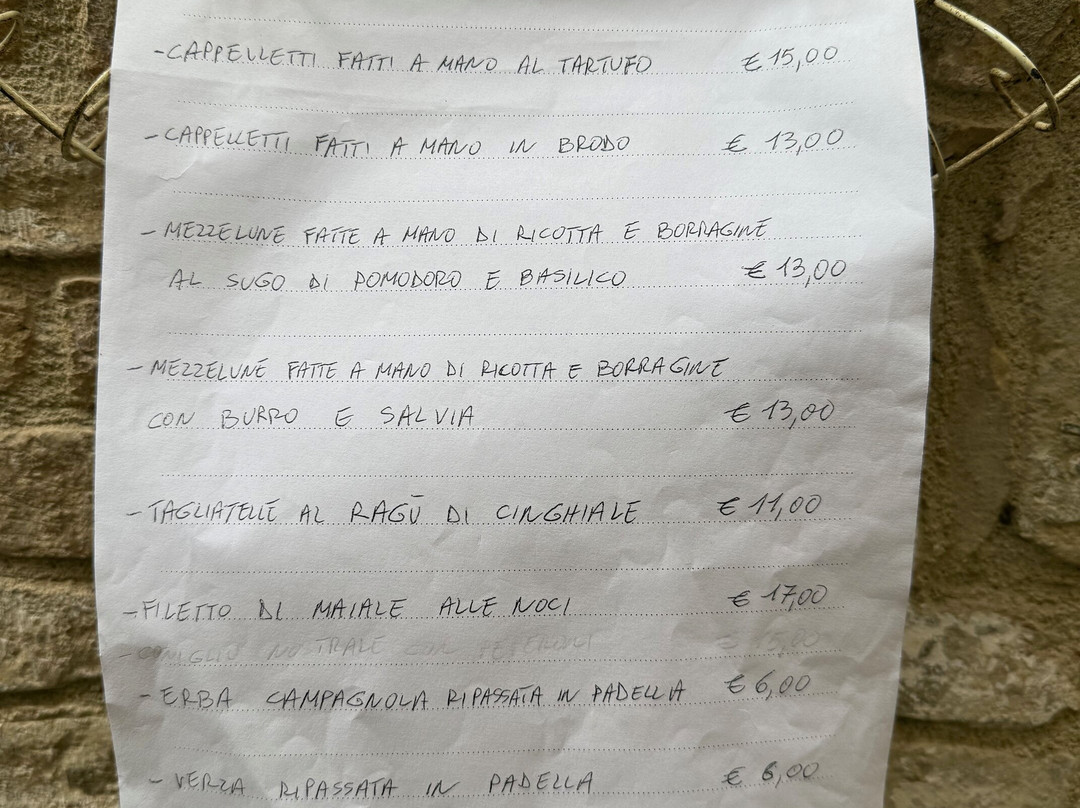 - CAPPELLETTI FATTI A MANO AL TARTUFO € 15,00
- CAPPELLETTI FATTI A MANO IN BRODO € 13,00
- MEZZELUNE FATTE A MANO DI RICOTTA E BORRAGINE
AL SUGO DI POMODORO E BASILICO € 13,00
- MEZZELUNE FATTE A MANO DI RICOTTA E BORRAGINE
CON BURRO E SALVIA € 13,00
- TAGLIATELLE AL RAGÙ DI CINGHIALE € 11,00
- FILETTO DI MAIALE ALLE NOCI € 17,00
- CONIGLIO NOSTRALE CON PEPERONI € 15,00
- ERBA CAMPAGNOLA RIPASSATA IN PADELLA € 6,00
- VERZA RIPASSATA IN PADELLA € 6,00